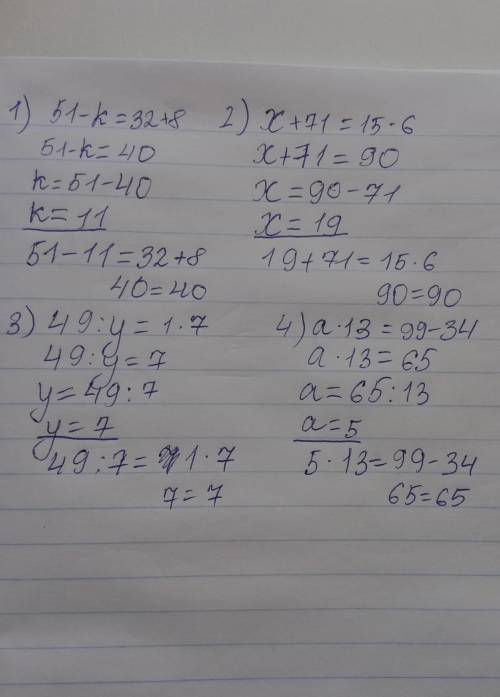 1) 51-k=32+8
51-k=40
k=51-40
k=11
51-11=32+8
40=40
2) x+71=15·6
x+71=90
x=90-71
x=19
19+71=15·6
90=90
3) 49:y=1·7
49:y=7
y=49:7
y=7
49:7=1·7
7=7
4) a·13=99-34
a·13=65
a=65:13
a=5
5·13=99-34
65=65